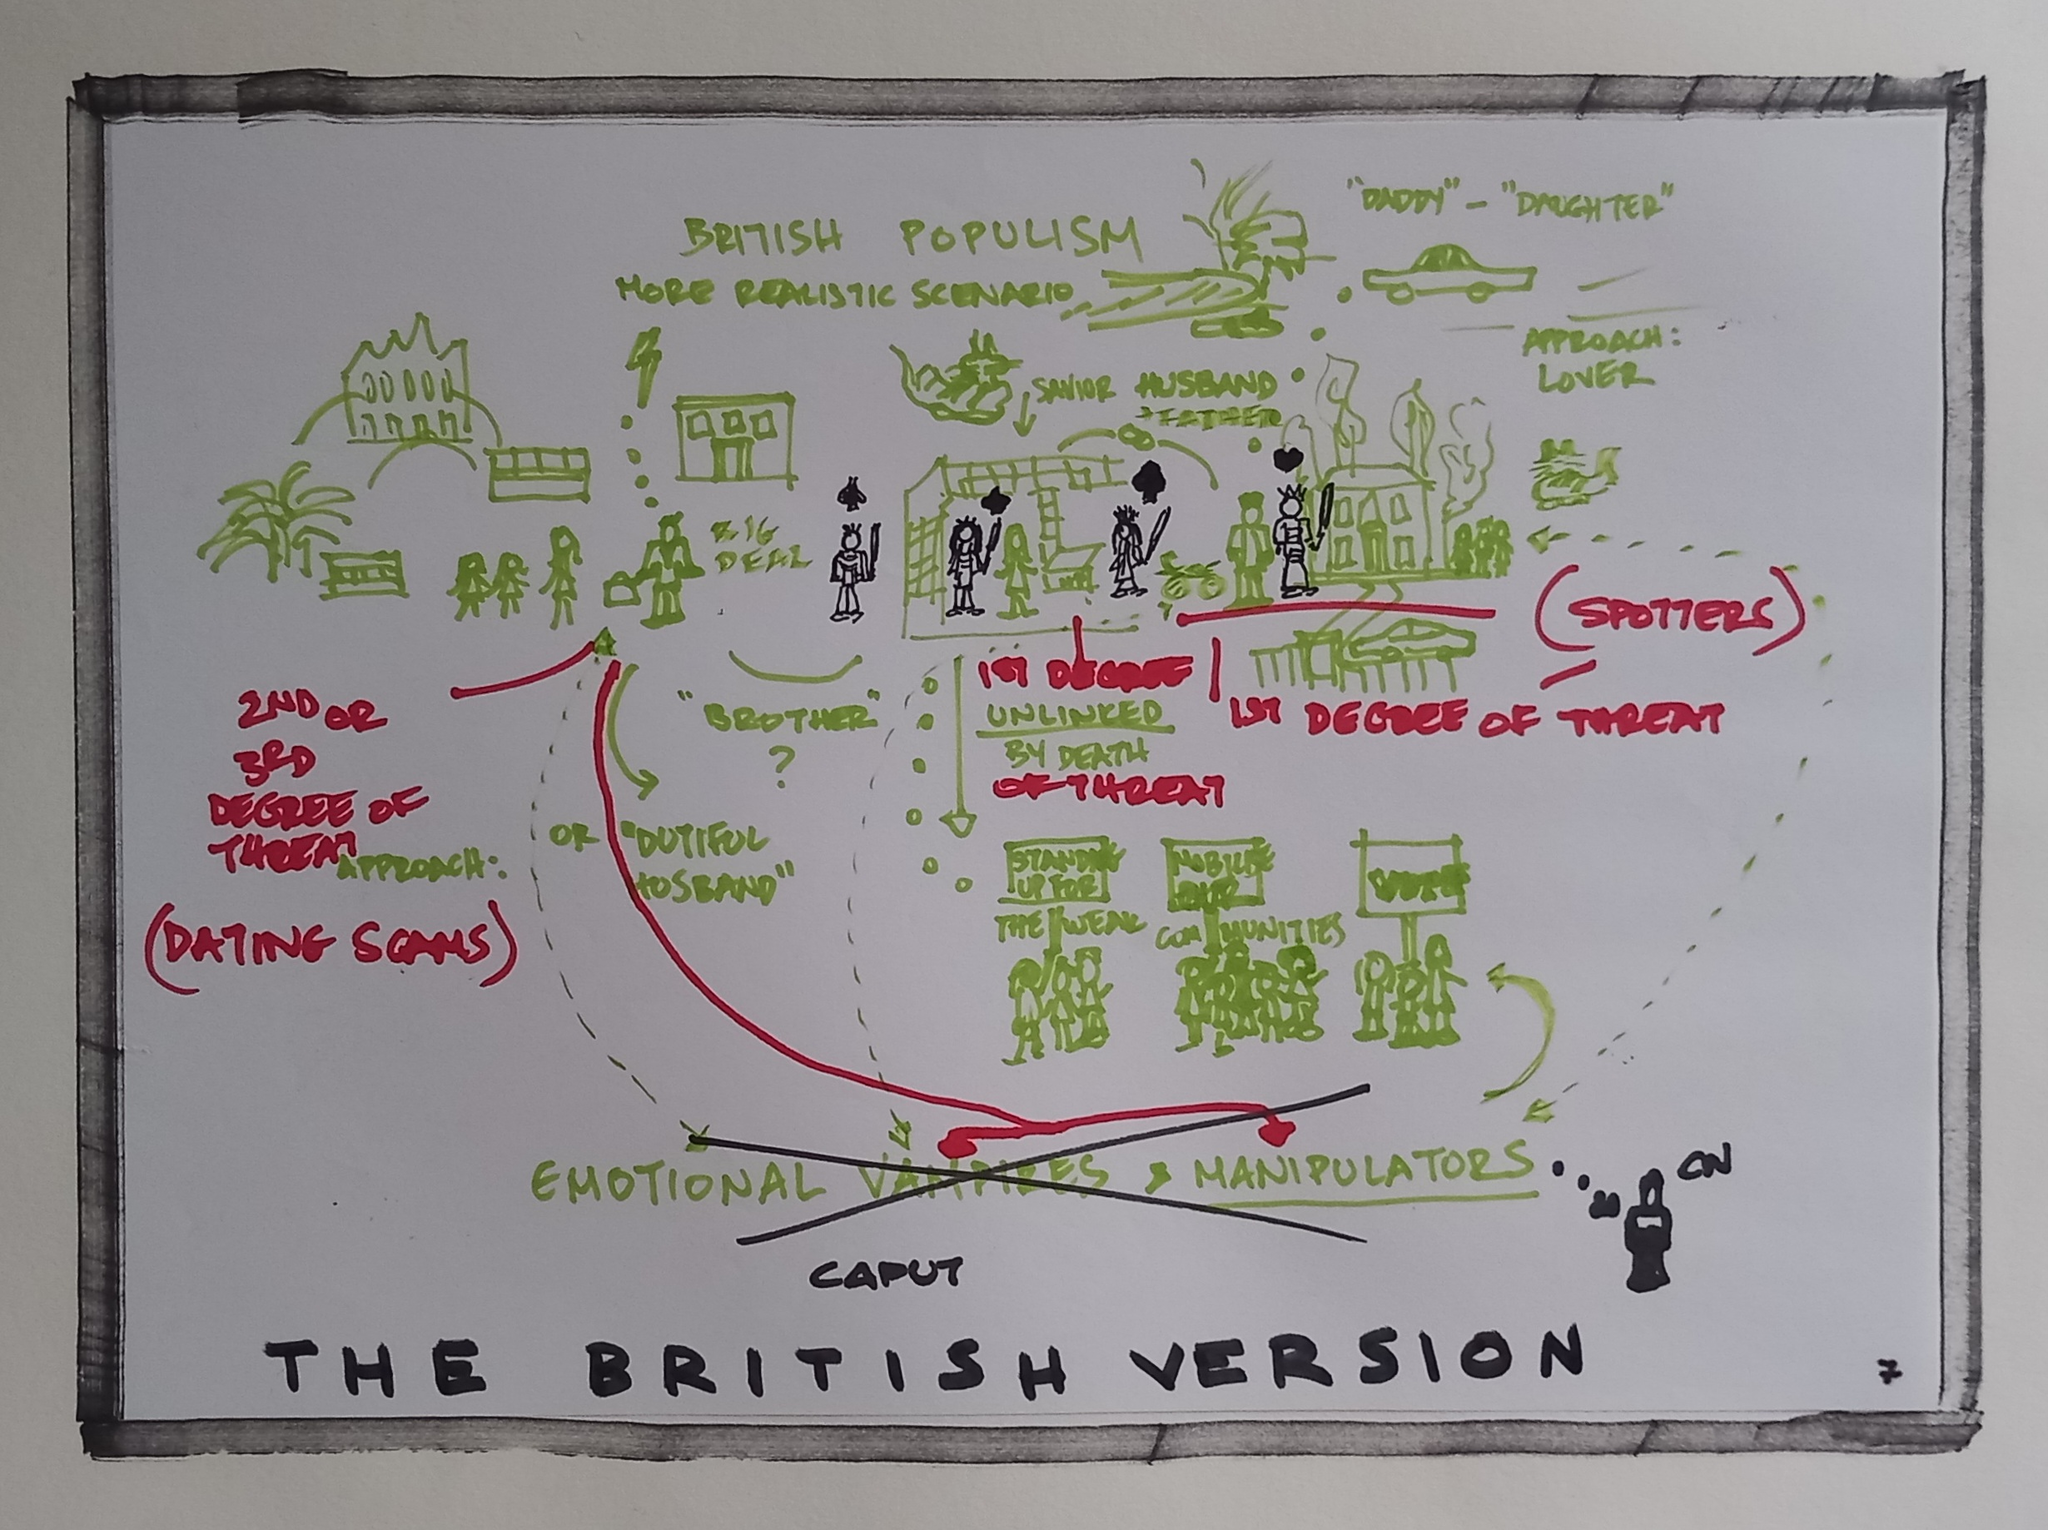 "DADDY" - "DAUGHTER"
BRITISH POPULISM
MORE REALISTIC SCENARIO
APPROACH:
LOVER
SAVIOR HUSBAND
+ FATHER
BIG
DEAL
(SPOTTERS)
2ND OR
3RD
DEGREE OF
THREAT
APPROACH:
(DATING SCAMS)
"BROTHER"
?
OR "DUTIFUL
HUSBAND"
1ST DEGREE
UNLINKED
BY DEATH
OF THREAT
1ST DEGREE OF THREAT
STANDING
UP FOR
THE WEAK
MOBILISE
OUR
COMMUNITIES
EMOTIONAL VAMPIRES & MANIPULATORS
ON
CAPUT
THE BRITISH VERSION
7